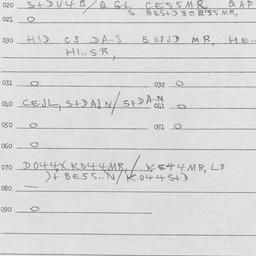 020 S+DU4B/Q GL CE55MR, QAP
S BES+D30E'55MR,
021 O
030 HID C3 DA..S BOPJD MR, HE..
HI..SR,
031 O 032 O
040 CEJL, S+DAJN/S+DA..N
041 O
050 O 051 O
060 O
070 DO44X KO44MR,/KE44MR, L3
)+BE55..N/KO44S+D
080 —
090 O